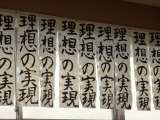 理想の実現
理想の実現
理想の実現
理想の実現
理想の実現
理想の実現
理想の実現